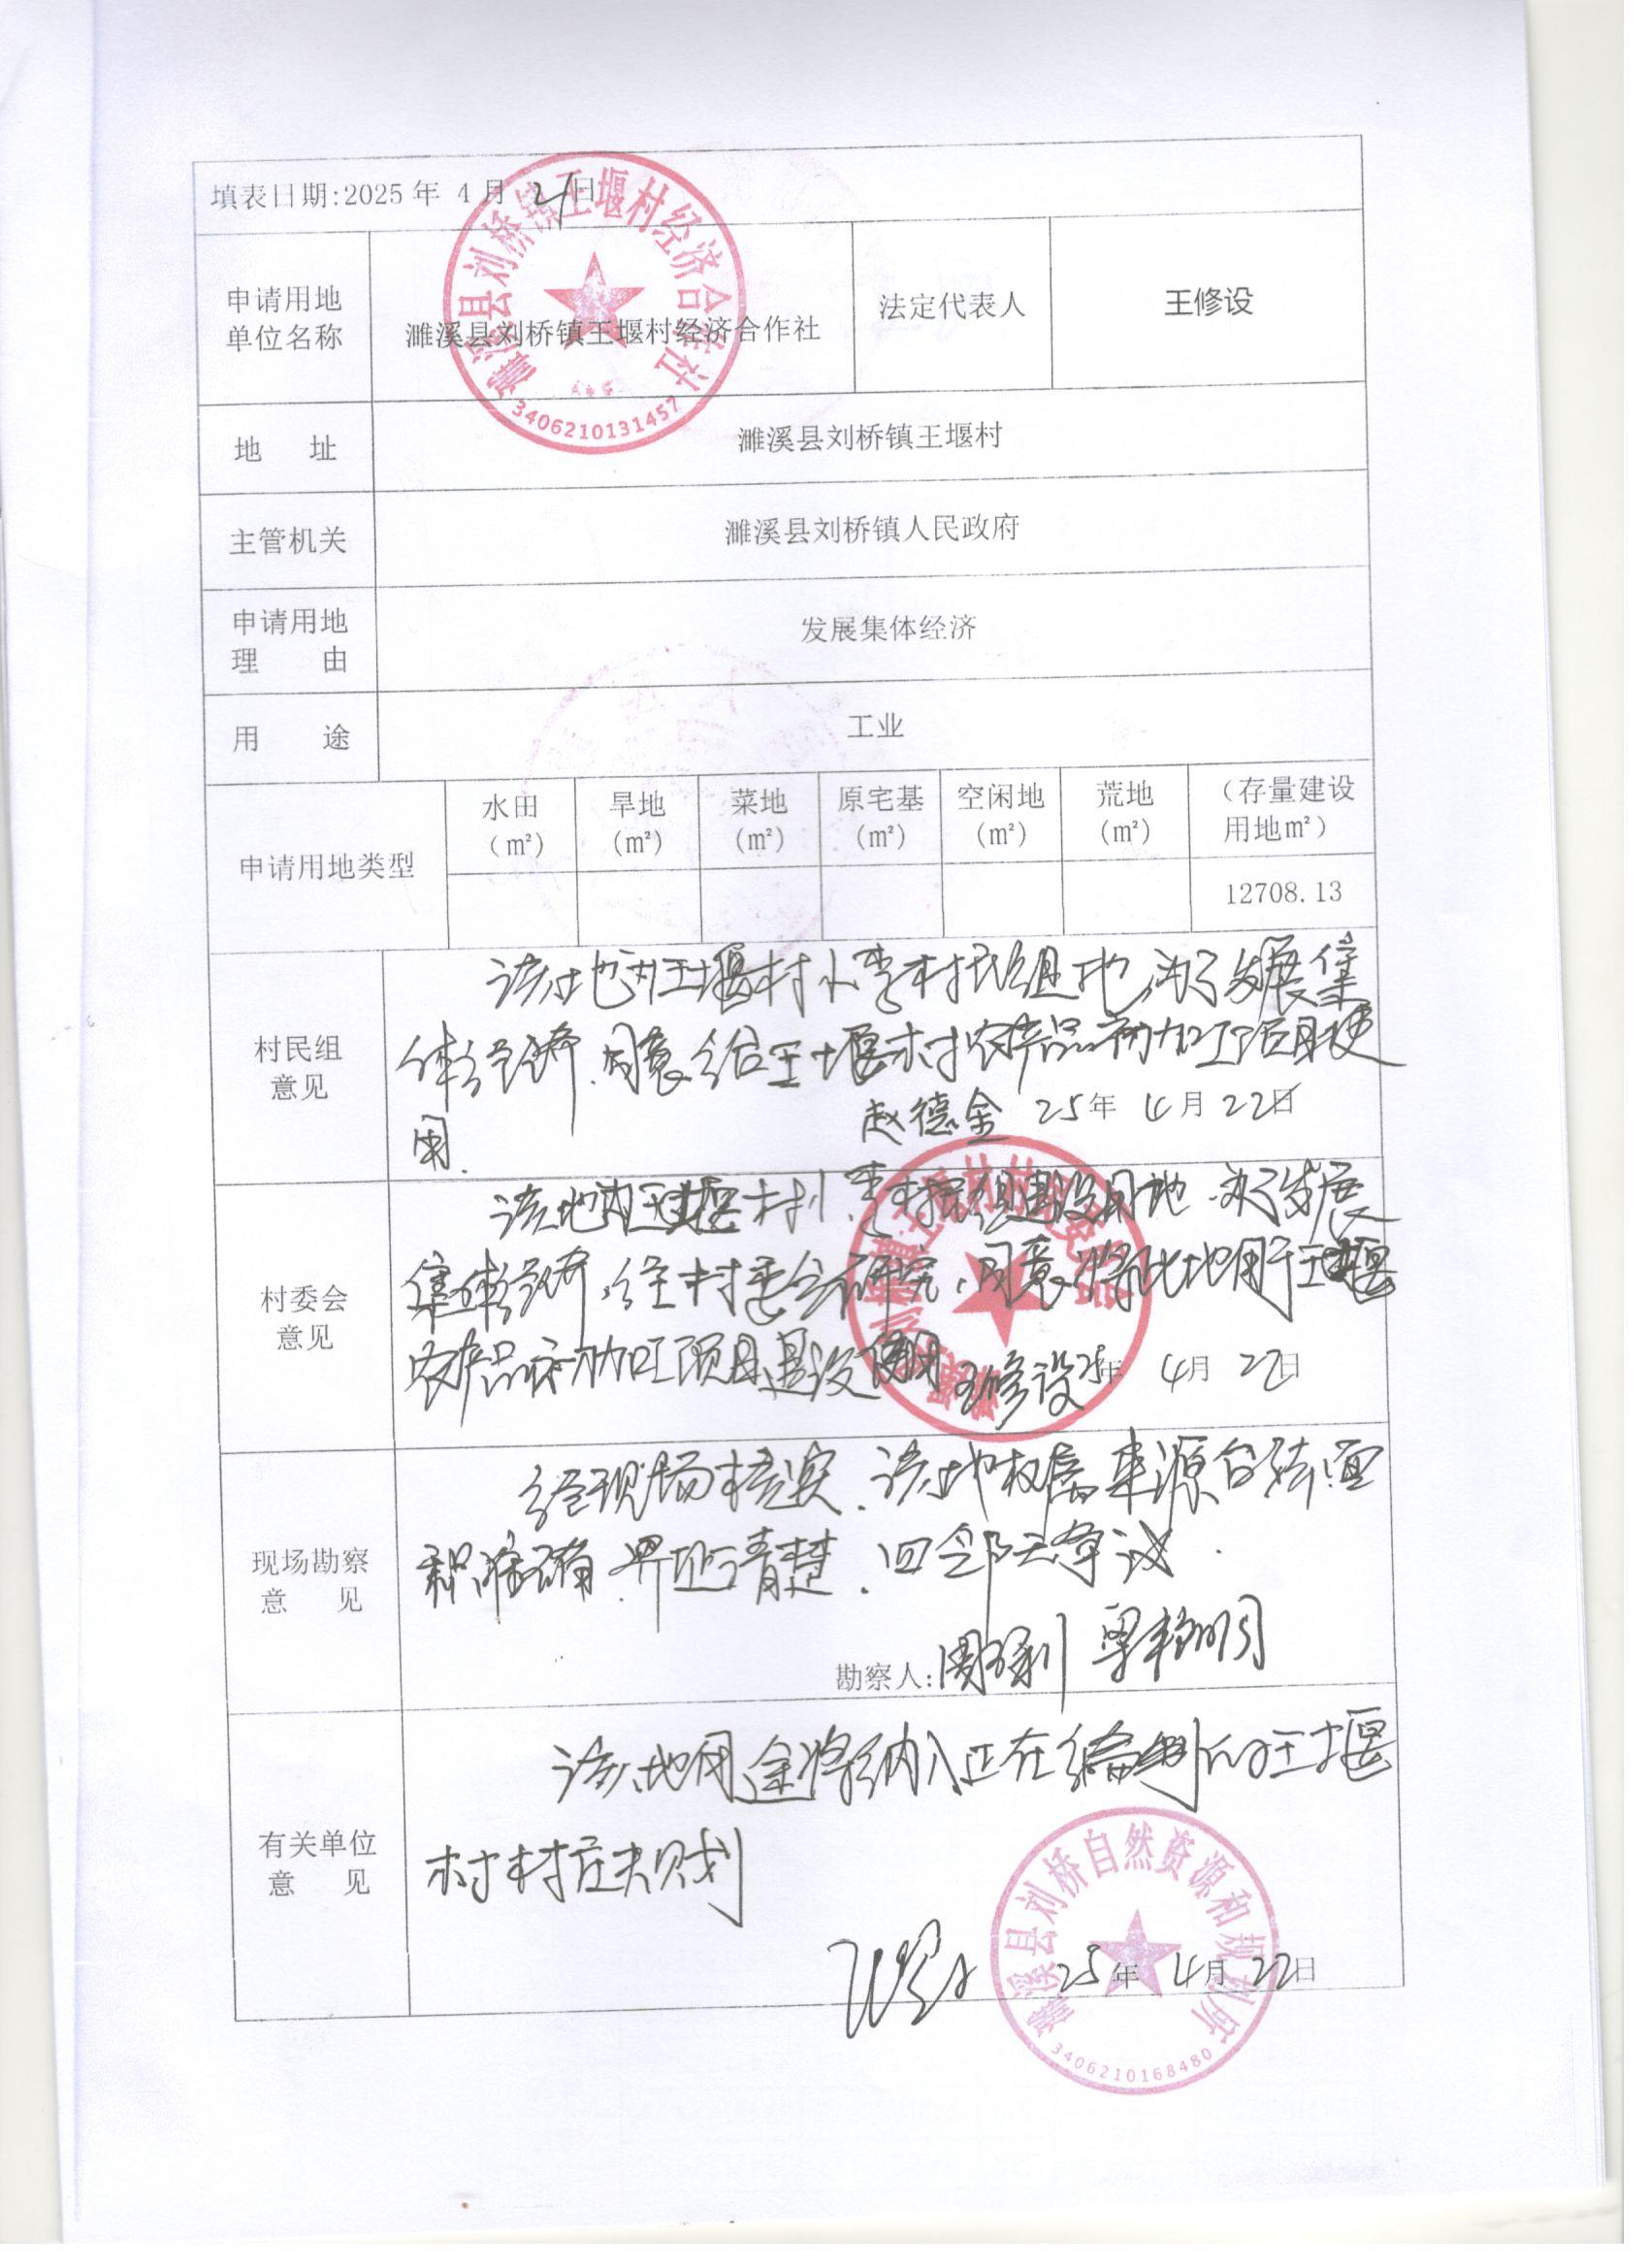 填表日期:2025年 4月 21日
申请用地
单位名称
濉溪县刘桥镇王堰村经济合作社
法定代表人
王修设
濉溪县刘桥镇王堰村经济合作社
3406210131457
地 址
濉溪县刘桥镇王堰村
主管机关
濉溪县刘桥镇人民政府
申请用地
理 由
发展集体经济
用 途
工业
申请用地类型
水田
（㎡）
旱地
(㎡)
菜地
(㎡)
原宅基
(㎡)
空闲地
(㎡)
荒地
(㎡)
（存量建设
用地㎡）
12708.13
村民组
意见
该地为王堰村小李村民组地,为了发展集
体经济.同意给王堰村农产品初加工项目使
用.
赵德金 25年 4月 22日
村委会
意见
该地为王堰村小李村民组建设用地.为了发展
集体经济.经村委会研究,同意将此地用于王堰
农产品初加工项目建设使用
王修设 25年 4月 22日
现场勘察
意 见
经现场核实.该地权属来源合法.面
积准确.界址清楚.四邻无争议.
勘察人:
有关单位
意 见
该地用途将纳入正在编制的王堰
村村庄规划
25年 4月 22日
濉溪县刘桥自然资源和规划所
3406210168480